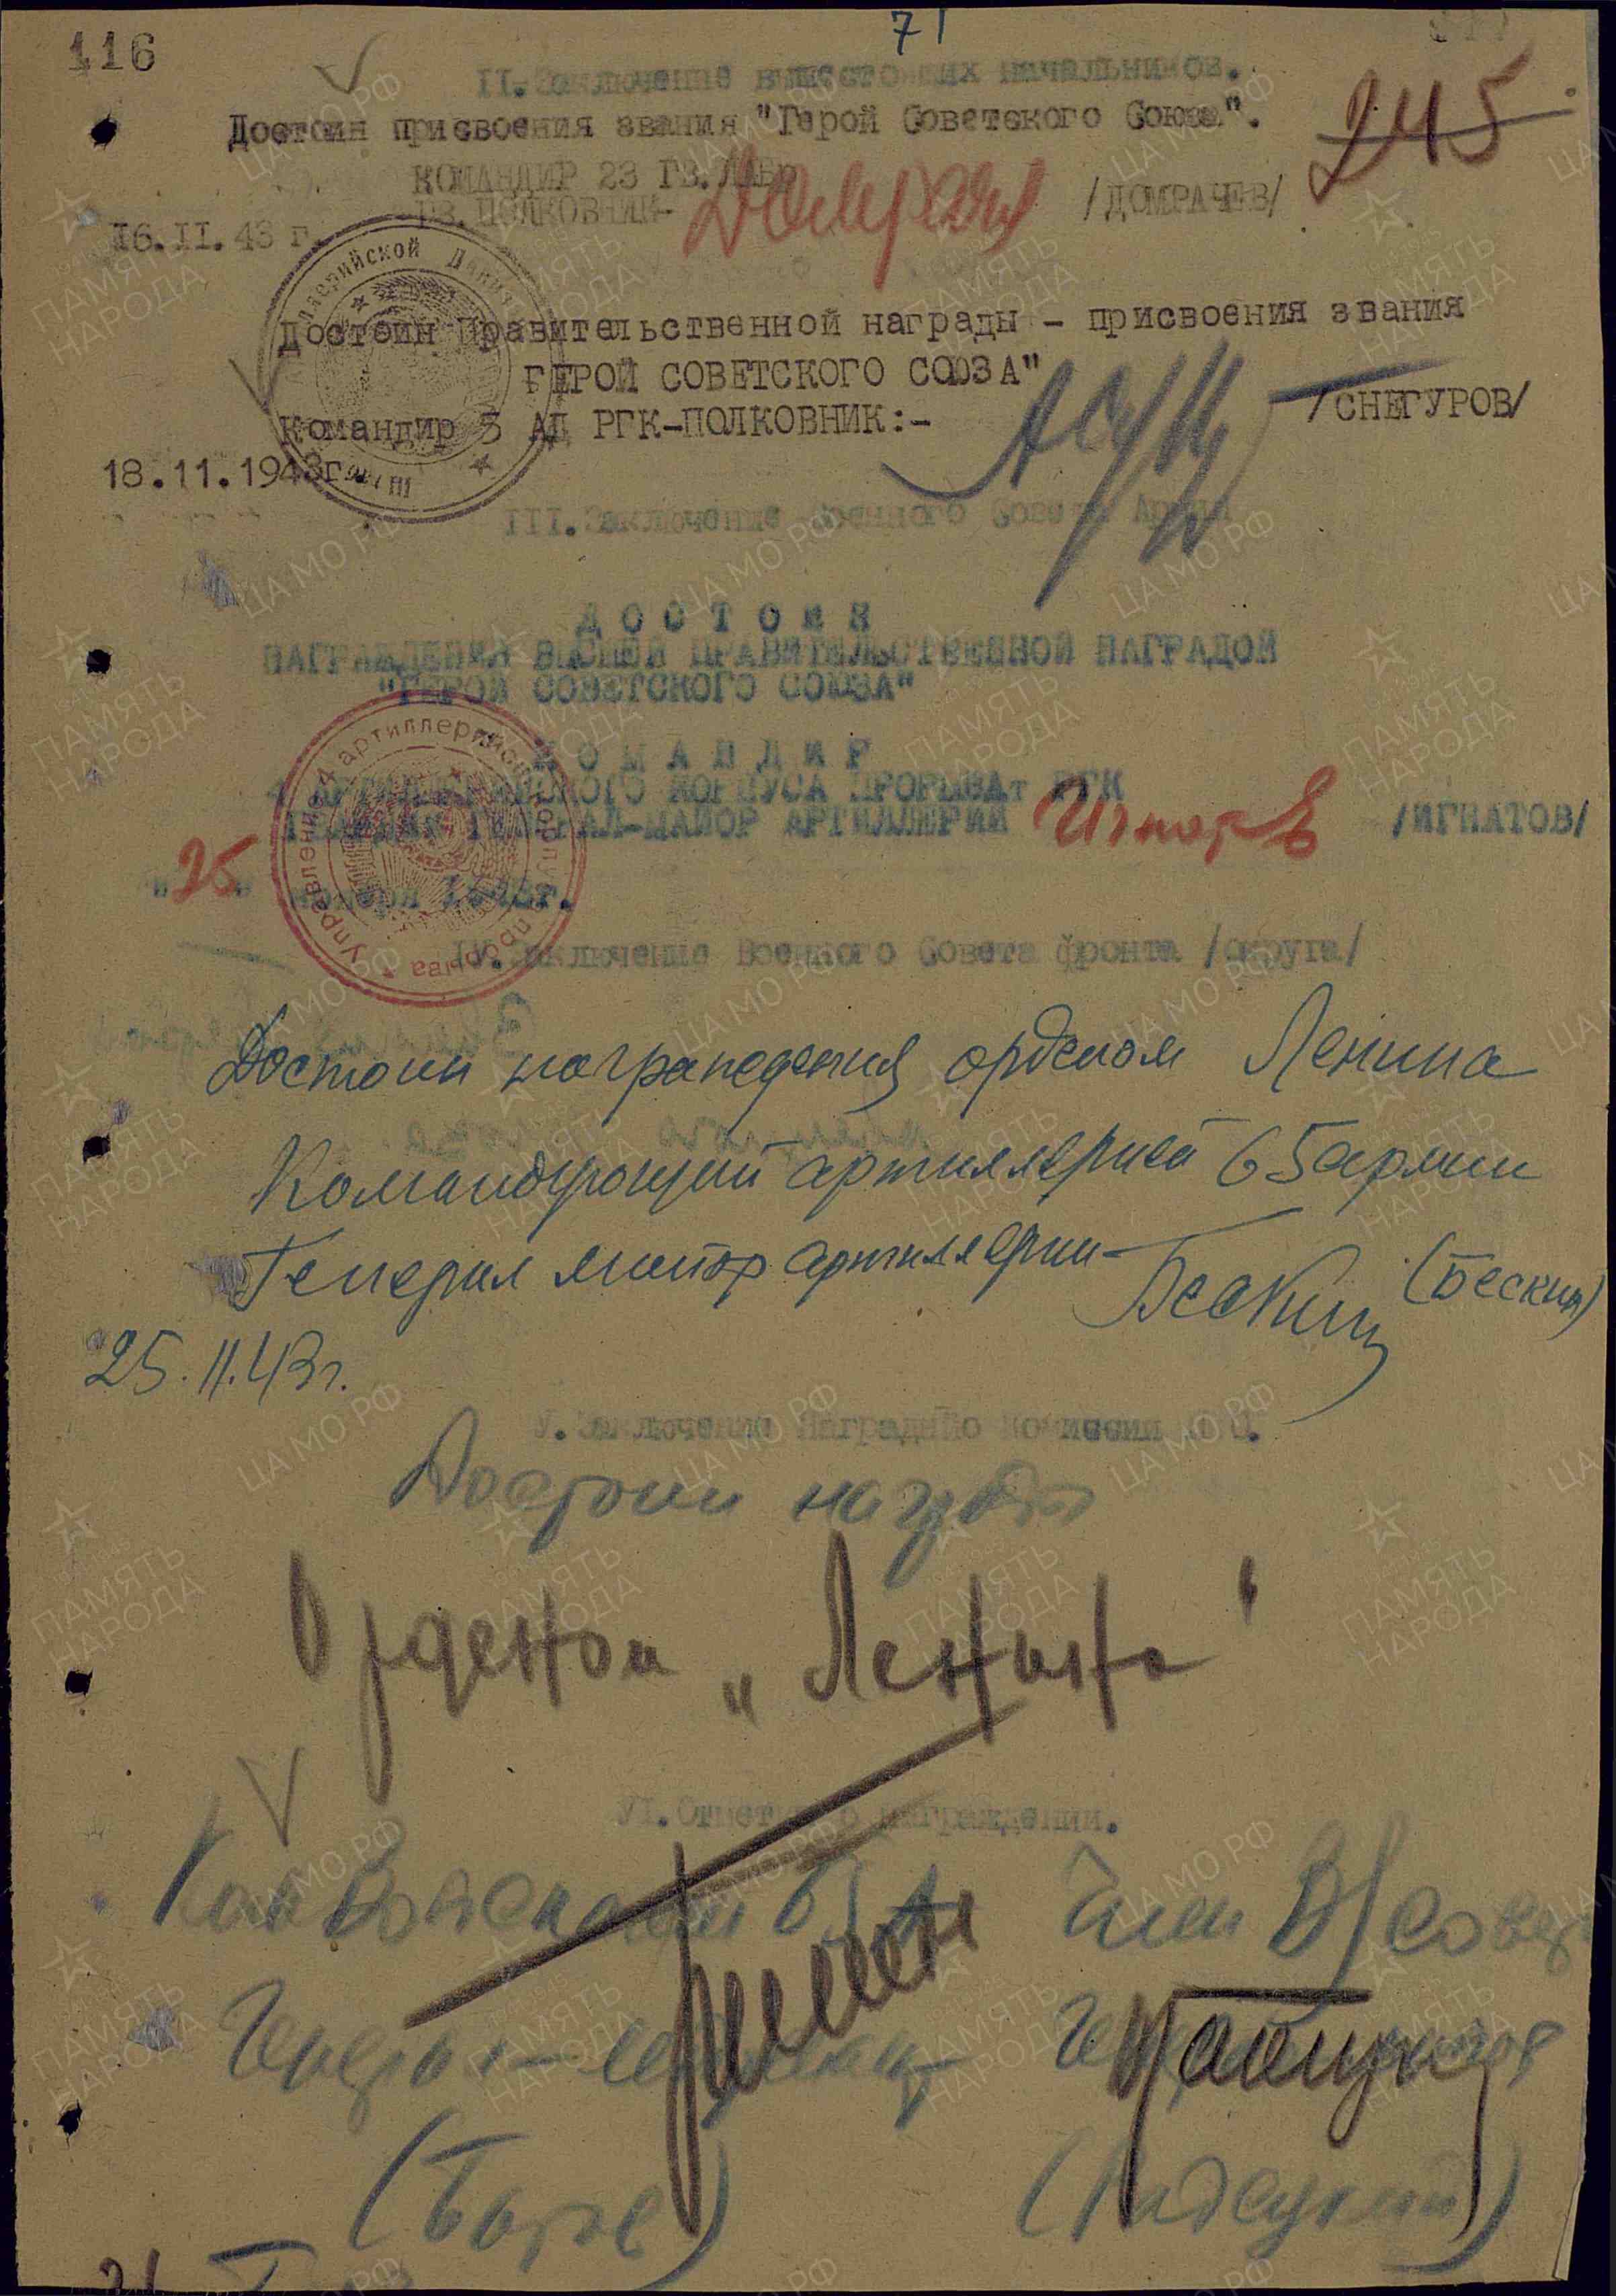 116
71
245
II. Заключение вышестоящих начальников.
Достоин присвоения звания "Герой Советского Союза".
КОМАНДИР 23 ГВ. ЛАБр
ГВ. ПОЛКОВНИК-
/ДОМРАЧЕВ/
16.II.43 г.
Достоин Правительственной награды - присвоения звания
ГЕРОЙ СОВЕТСКОГО СОЮЗА"
Командир 5 АД РГК-ПОЛКОВНИК:-
/СНЕГУРОВ/
18.11.1943г.
III. Заключение Военного Совета Армии
ДОСТОИН
НАГРАЖДЕНИЯ ВЫСШЕЙ ПРАВИТЕЛЬСТВЕННОЙ НАГРАДОЙ
"ГЕРОЙ СОВЕТСКОГО СОЮЗА"
КОМАНДИР
4 АРТИЛЛЕРИЙСКОГО КОРПУСА ПРОРЫВА РГК
ГЕНЕРАЛ-МАЙОР АРТИЛЛЕРИИ
Игнатов
/ИГНАТОВ/
"25" ноября 1943г.
IV. Заключение Военного Совета фронта /округа/
Достоин награждения орденом Ленина
Командующий артиллерией 65 армии
Генерал майор артиллерии
Бескин
(Бескин)
25.11.43г.
У. Заключение Наградной комиссии
Достоин награды
Орденом „Ленина"
УI. Отметка о награждении.
Ком Войсками 65 А
Член В/Совета
Генерал-лейтенант
Генерал майор
(Батов)
(Радецкий)